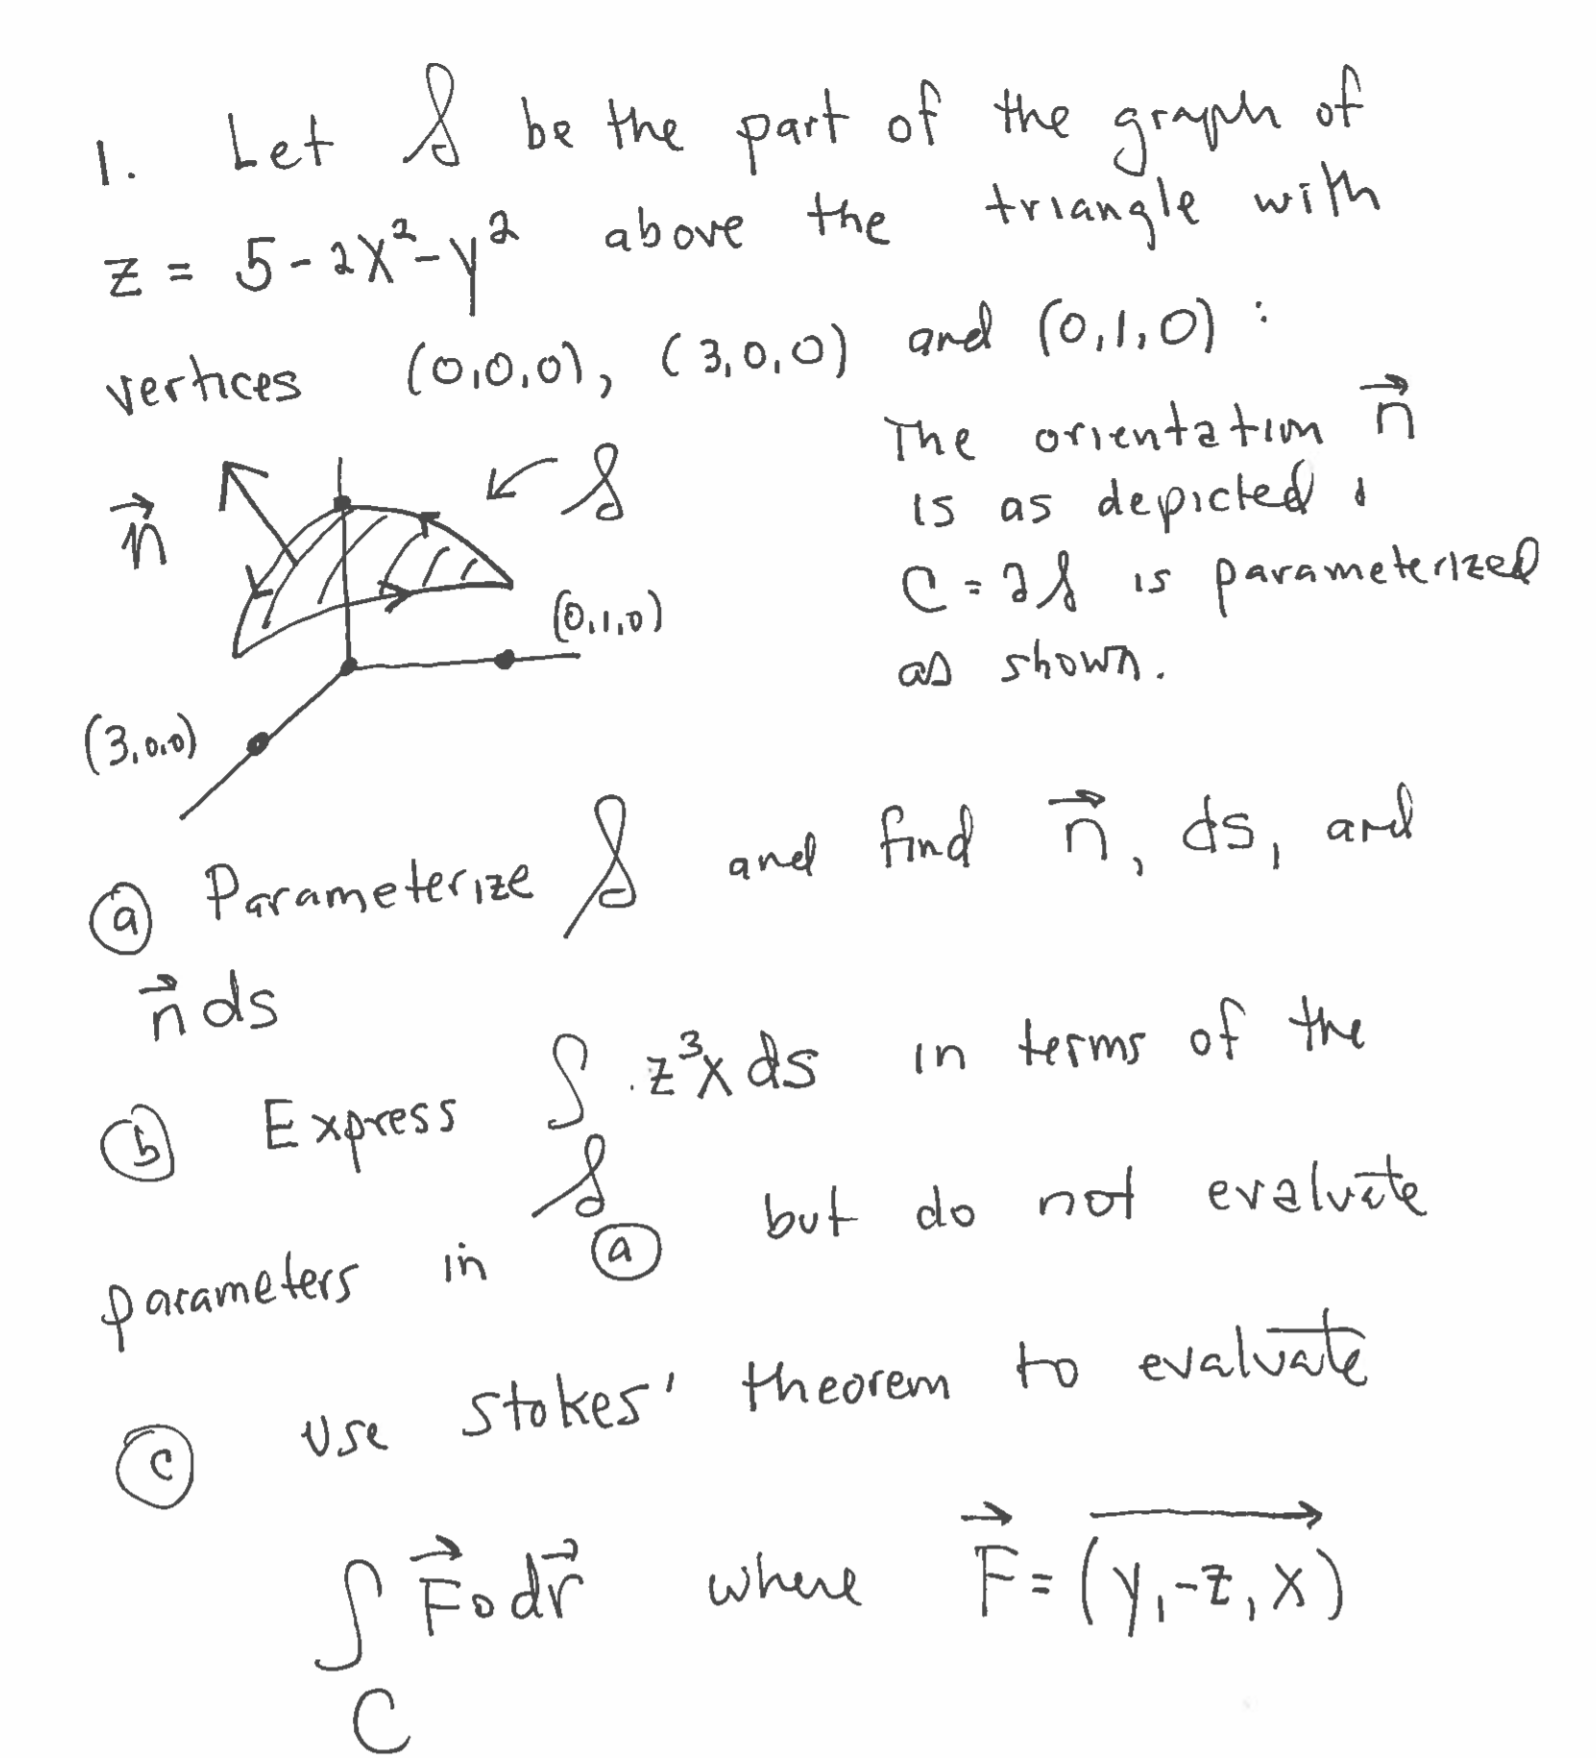 1. Let S be the part of the graph of
z = 5 - 2x² - y² above the triangle with
vertices (0,0,0), (3,0,0) and (0,1,0) :
The orientation n⃗
is as depicted &
C = ∂S is parameterized
as shown.
n⃗
S
(0,1,0)
(3,0,0)
ⓐ Parameterize S and find n⃗, ds, and
n⃗ ds
ⓑ Express ∫_S z³x ds in terms of the
parameters in ⓐ but do not evaluate
ⓒ Use Stokes' theorem to evaluate
∫_C F⃗ ∘ dr⃗ where F⃗ = (y, -z, x)